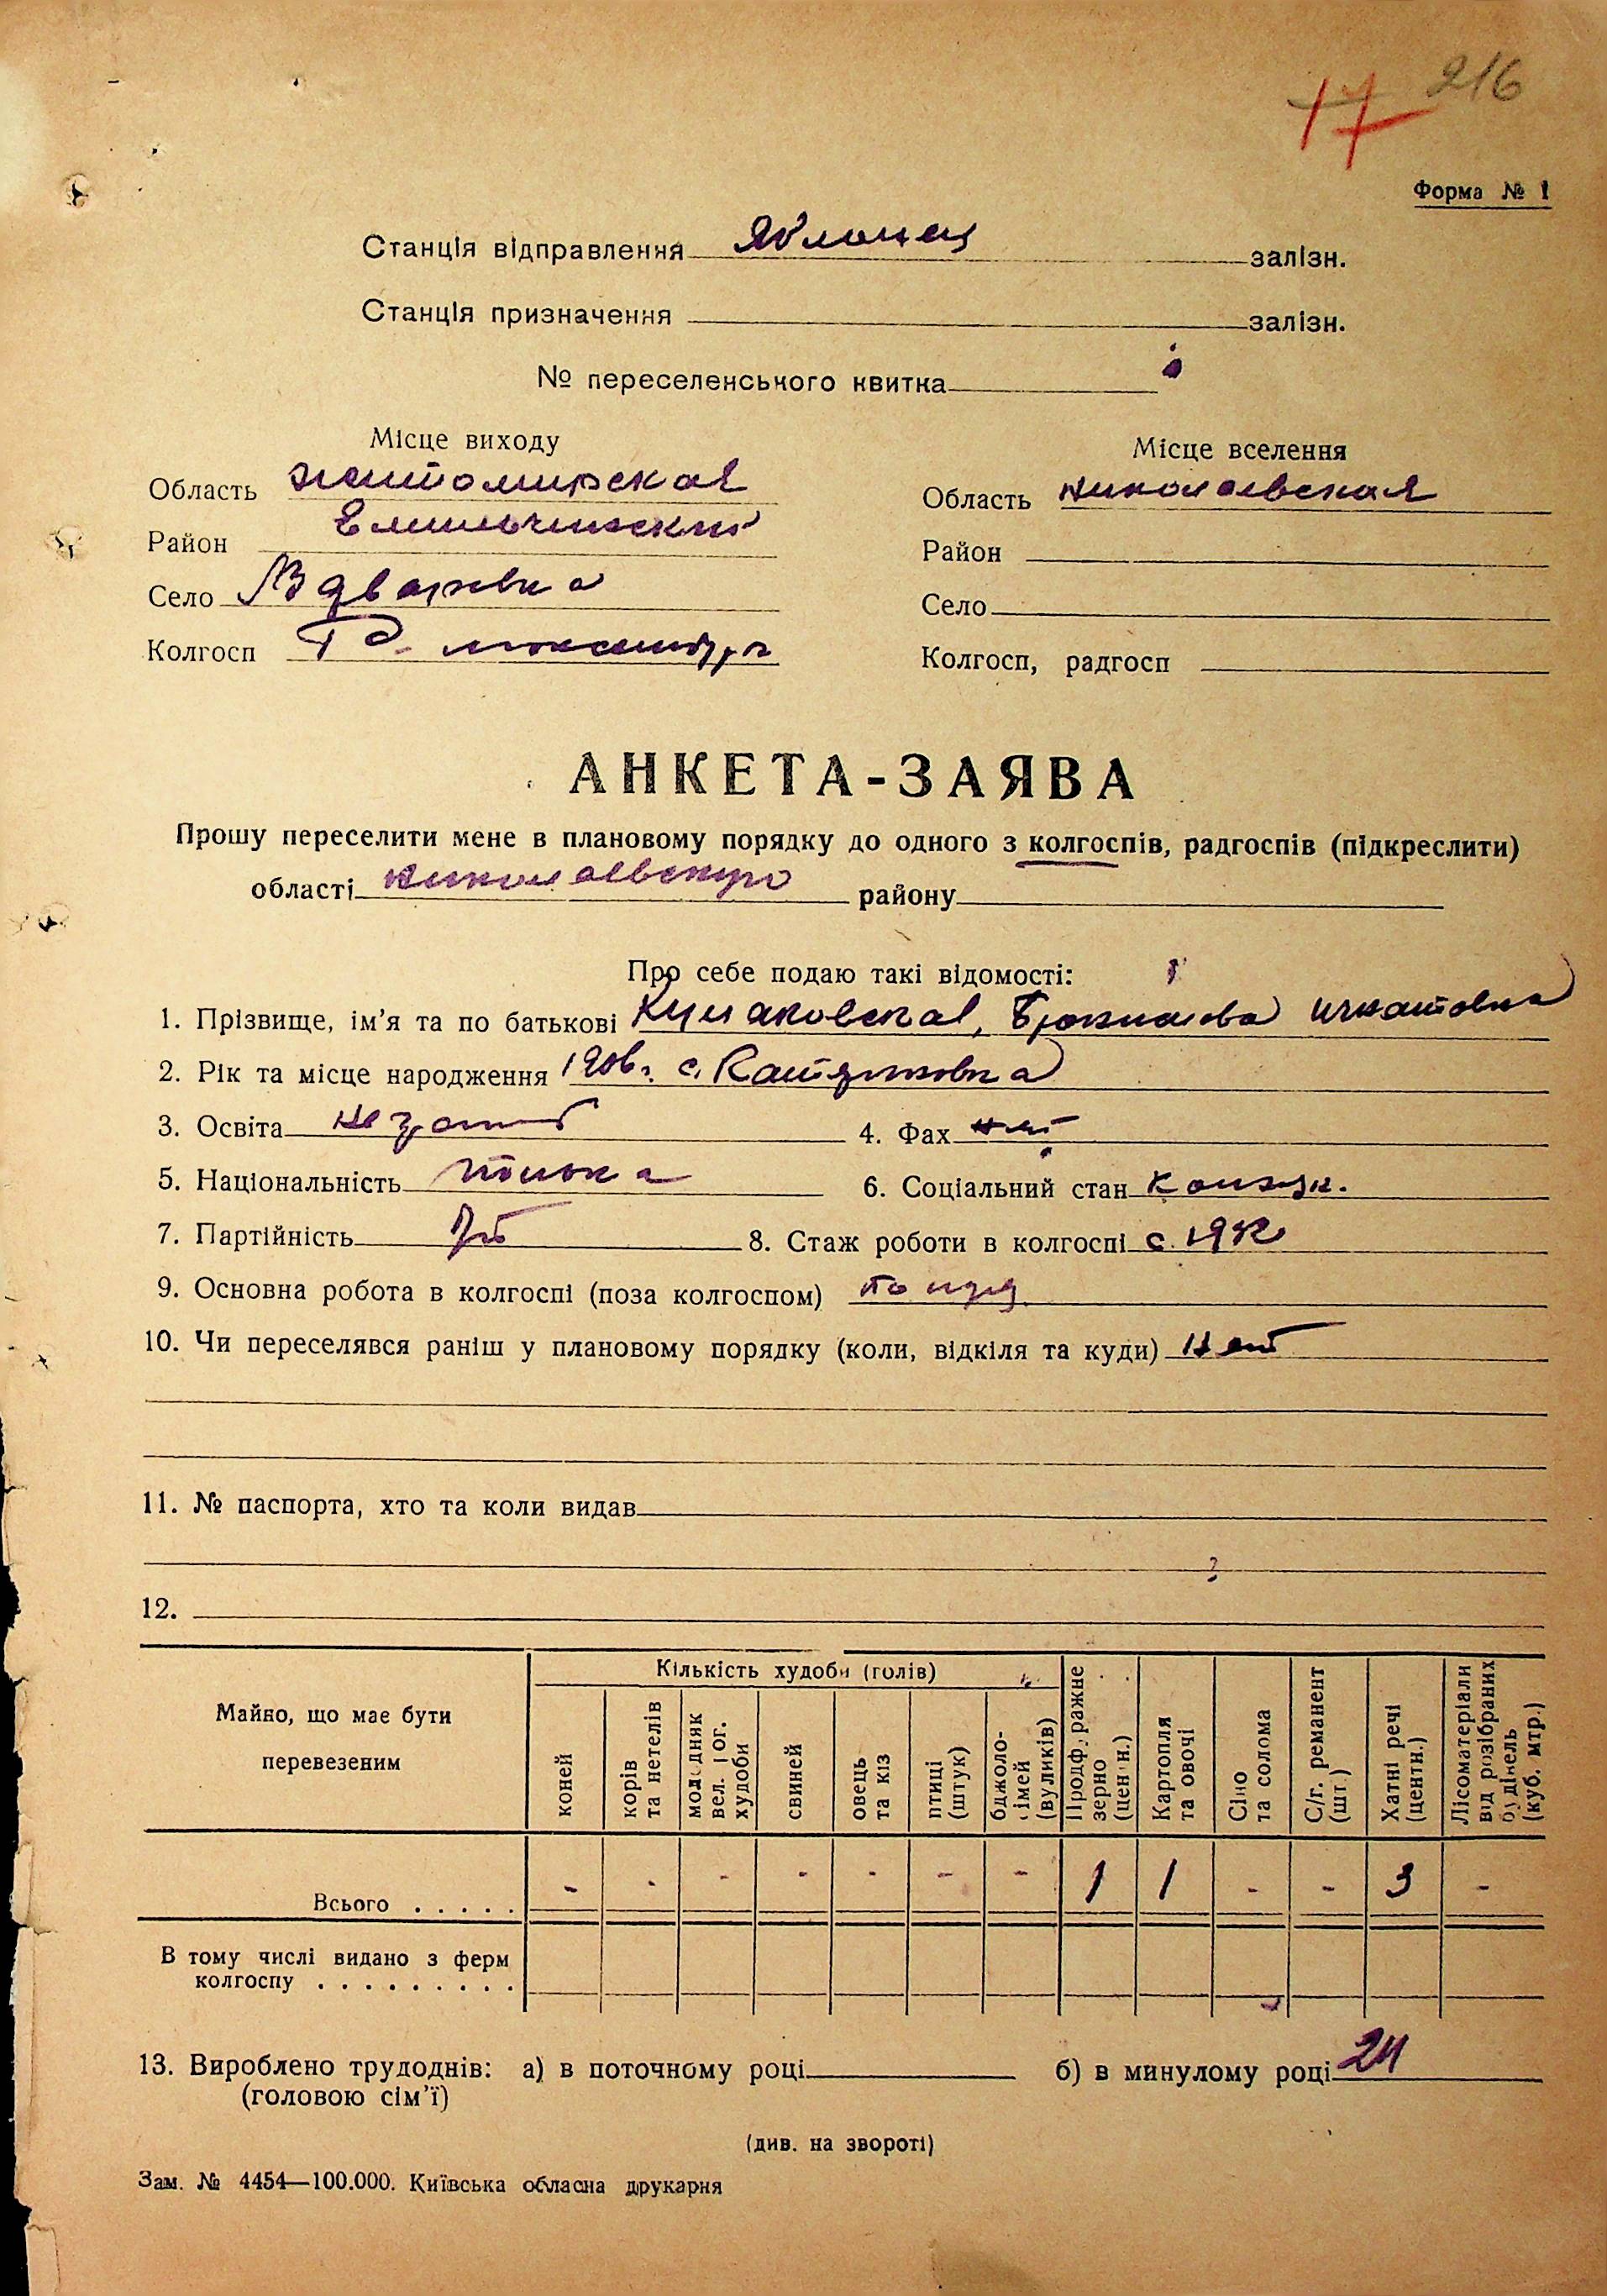 17 216
Форма № 1
Станція відправлення Яблонец залізн.
Станція призначення залізн.
№ переселенського квитка
Місце виходу
Місце вселення
Область житомирская
Область николаевская
Район Емильчинский
Район
Село
Село
Колгосп
Колгосп, радгосп
АНКЕТА-ЗАЯВА
Прошу переселити мене в плановому порядку до одного з колгоспів, радгоспів (підкреслити)
області николаевскую району
Про себе подаю такі відомості:
1. Прізвище, ім'я та по батькові
2. Рік та місце народження 1906 г. с.
3. Освіта 4. Фах нет
5. Національність полька 6. Соціальний стан
7. Партійність б/п 8. Стаж роботи в колгоспі с
9. Основна робота в колгоспі (поза колгоспом)
10. Чи переселявся раніш у плановому порядку (коли, відкіля та куди) Нет
11. № паспорта, хто та коли видав
12.
Майно, що має бути перевезеним
Кількість худоби (голів)
коней
корів та нетелів
молодняк вел. рог. худоби
свиней
овець та кіз
птиці (штук)
бджоло-сімей (вуликів)
Продфуражне зерно (центн.)
Картопля та овочі
Сіно та солома
С/г. реманент (шт.)
Хатні речі (центн.)
Лісоматеріали від розібраних будівель (куб. мтр.)
Всього . . . . . - - - - - - - 1 1 - - 3 -
В тому числі видано з ферм
колгоспу . . . . . . . . .
13. Вироблено трудоднів: а) в поточному році б) в минулому році
(головою сім'ї)
(див. на звороті)
Зам. № 4454—100.000. Київська обласна друкарня